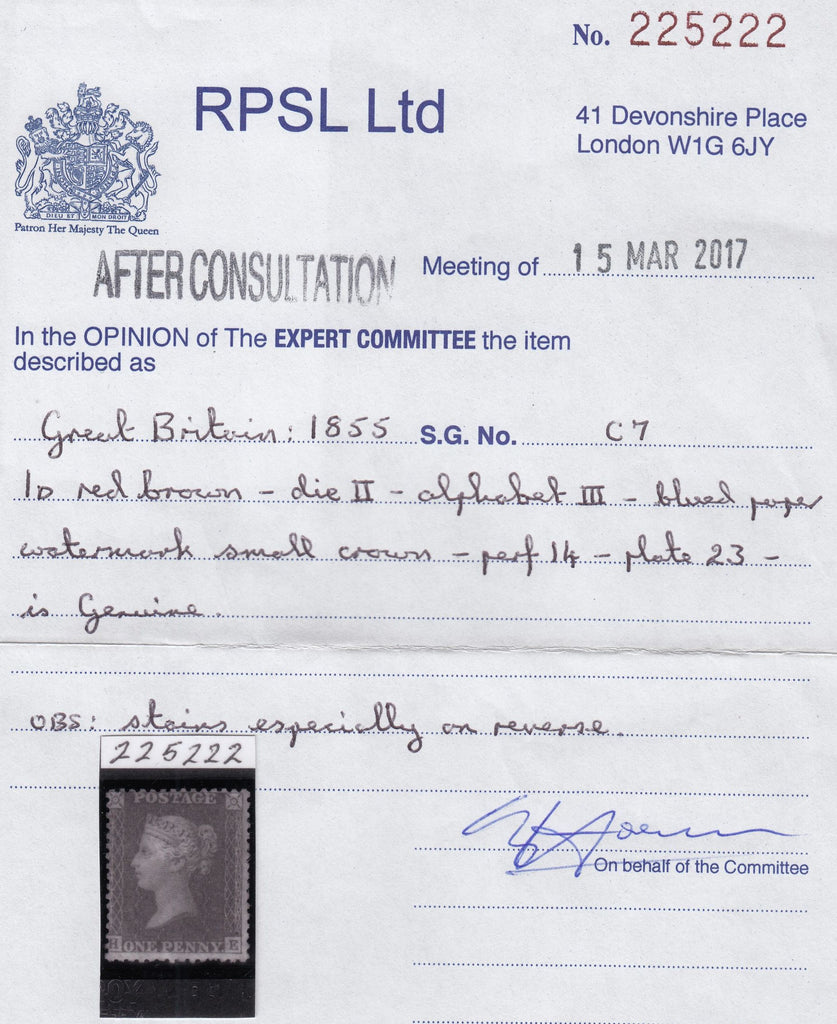 No. 225222
RPSL Ltd
41 Devonshire Place
London W1G 6JY
DIEU ET MON DROIT
Patron Her Majesty The Queen
AFTER CONSULTATION
Meeting of 15 MAR 2017
In the OPINION of The EXPERT COMMITTEE the item
described as
Great Britain: 1855 S.G. No. C7
1D red brown – die II – alphabet III – blued paper
watermark small crown – perf 14 – plate 23 –
is Genuine.
OBS: stains especially on reverse.
225222
POSTAGE
H ONE PENNY E
On behalf of the Committee